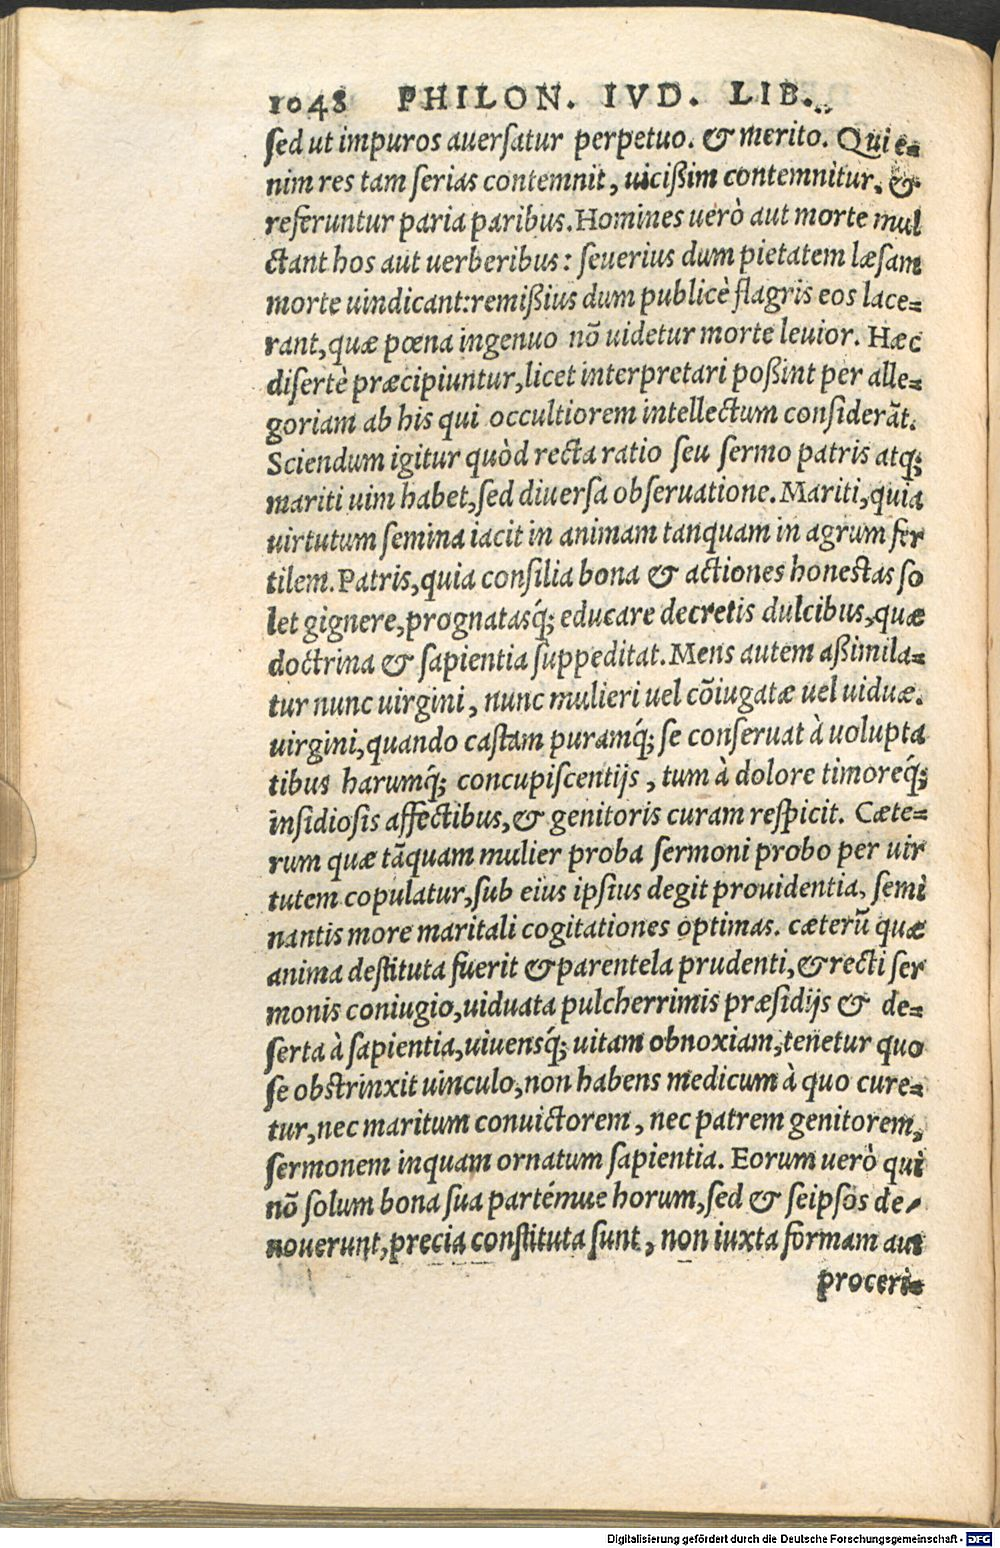 1048 PHILON. IVD. LIB.
sed ut impuros auersatur perpetuo. & merito. Qui e-
nim res tam serias contemnit, uicißim contemnitur. &
referuntur paria paribus. Homines uerò aut morte mul
ctant hos aut uerberibus: seuerius dum pietatem læsam
morte uindicant: remißius dum publicè flagris eos lace-
rant, quæ pœna ingenuo nõ uidetur morte leuior. Hæc
disertè præcipiuntur, licet interpretari poßint per alle-
goriam ab his qui occultiorem intellectum considerãt.
Sciendum igitur quòd recta ratio seu sermo patris atq;
mariti uim habet, sed diuersa obseruatione. Mariti, quia
uirtutum semina iacit in animam tanquam in agrum fer
tilem. Patris, quia consilia bona & actiones honestas so
let gignere, prognatasq́; educare decretis dulcibus, quæ
doctrina & sapientia suppeditat. Mens autem aßimila-
tur nunc uirgini, nunc mulieri uel cõiugatæ uel uiduæ.
uirgini, quando castam puramq́; se conseruat à uolupta
tibus harumq́; concupiscentijs, tum à dolore timoreq́;
insidiosis affectibus, & genitoris curam respicit. Cæte-
rum quæ tãquam mulier proba sermoni probo per uir
tutem copulatur, sub eius ipsius degit prouidentia, semi
nantis more maritali cogitationes optimas. cæterũ quæ
anima destituta fuerit & parentela prudenti, & recti ser
monis coniugio, uiduata pulcherrimis præsidijs & de-
serta à sapientia, uiuensq́; uitam obnoxiam, tenetur quo
se obstrinxit uinculo, non habens medicum à quo cure-
tur, nec maritum conuictorem, nec patrem genitorem,
sermonem inquam ornatum sapientia. Eorum uerò qui
nõ solum bona sua partémue horum, sed & seipsos de-
nouerunt, precia constituta sunt, non iuxta formam aut
proceri-
Digitalisierung gefördert durch die Deutsche Forschungsgemeinschaft - DFG